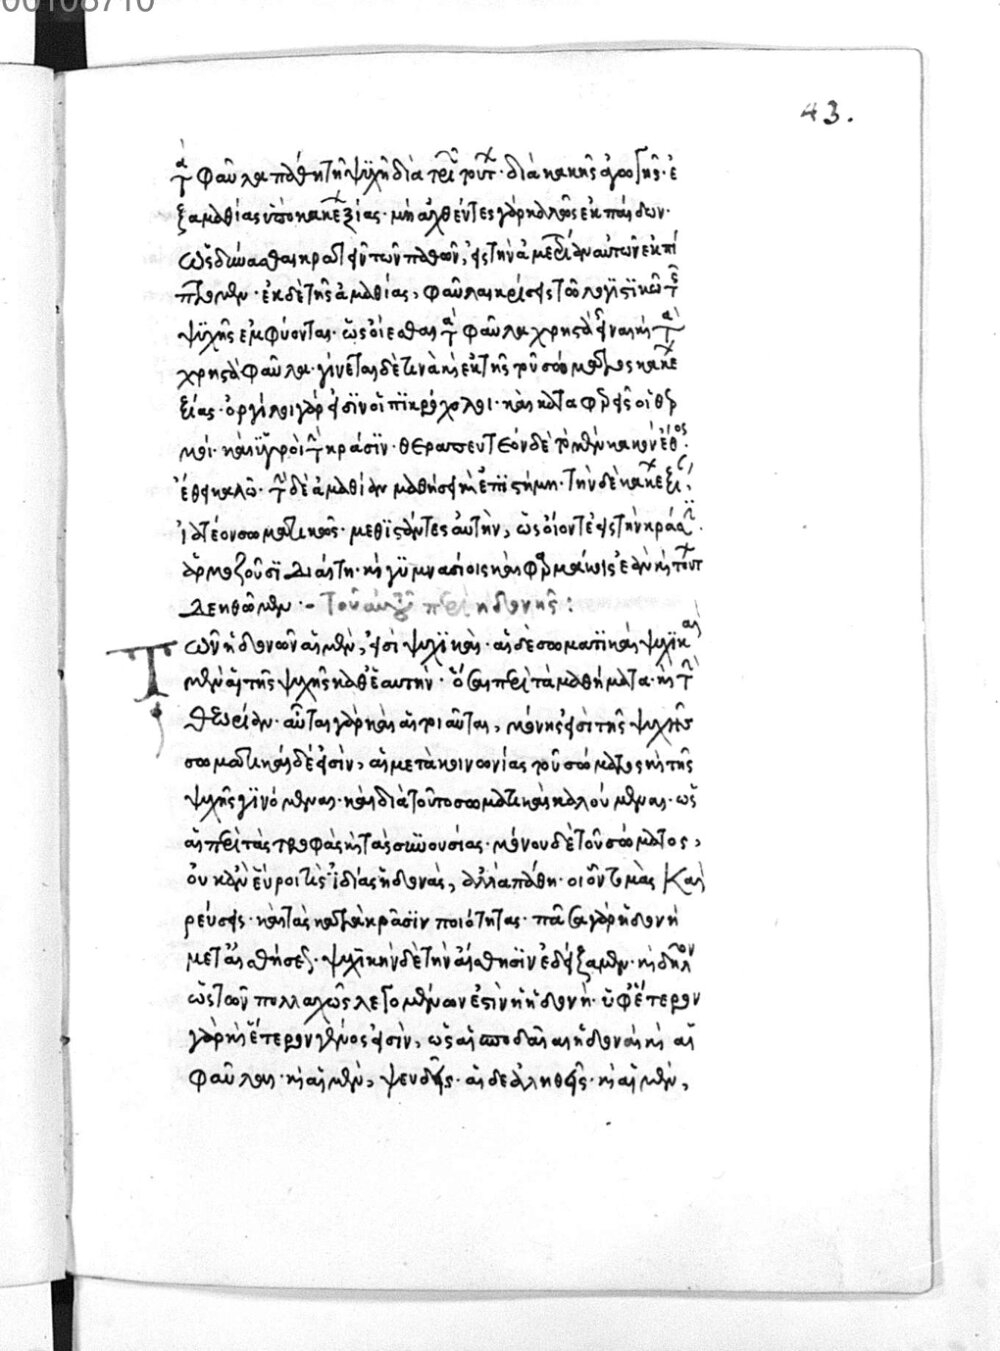 43.
τὰ φαῦλα πάθη τῇ ψυχῇ διὰ τριῶν τούτων· διὰ κακῆς ἀγωγῆς· ἐ
ξ ἀμαθίας ὑπὸ καχεξίας· μὴ ἀχθέντες γὰρ καλῶς ἐκ παίδων·
ὡς δύνασθαι κρατεῖν τῶν παθῶν, εἰς τὴν ἀμετρίαν αὐτῶν ἐκπί
πτομεν· ἐκ δὲ τῆς ἀμαθίας, φαῦλαι κρίσεις τῷ λογιστικῷ τῆς
ψυχῆς ἐμφύονται· ὡς οἴεσθαι τὰ φαῦλα χρηστὰ εἶναι καὶ τὰ
χρηστὰ φαῦλα· γίνεται δέ τινα καὶ ἐκ τῆς τοῦ σώματος καχε
ξίας· ὀργίλοι γάρ εἰσιν οἱ πικρόχολοι· καὶ καταφερεῖς οἱ θερ
μοὶ καὶ ὑγροὶ τὴν κρᾶσιν· θεραπευτέον δὲ τὸ μὲν κακὸν ἔθος·
ἔθει καλῷ· τὴν δὲ ἀμαθίαν μαθήσει καὶ ἐπιστήμῃ· τὴν δὲ καχεξίαν
ἰατέον σωματικῶς· μεθιστάντες αὐτὴν, ὡς οἷόν τε εἰς τὴν κρᾶσιν·
ἁρμοζούσῃ διαίτῃ· καὶ γυμνασίοις καὶ φαρμάκοις ἐὰν καὶ τούτων
δεηθῶμεν :- Τοῦ αὐτοῦ περὶ ἡδονῆς :
Τῶν ἡδονῶν αἱ μὲν, εἰσὶ ψυχικαὶ· αἱ δὲ σωματικαί· ψυχικαὶ
μὲν αἱ τῆς ψυχῆς καθ' ἑαυτὴν· ὅσαι περὶ τὰ μαθήματα· καὶ τὴν
θεωρίαν· αὗται γὰρ καὶ αἱ τοιαῦται, μόνης εἰσὶ τῆς ψυχῆς·
σωματικαὶ δέ εἰσιν, αἱ μετὰ κοινωνίας τοῦ σώματος καὶ τῆς
ψυχῆς γινόμεναι· καὶ διὰ τοῦτο σωματικαὶ καλούμεναι· ὡς
αἱ περὶ τὰς τροφὰς καὶ τὰς συνουσίας· μόνου δὲ τοῦ σώματος,
οὐκ ἂν εὕροι τις ἰδίας ἡδονὰς, ἀλλὰ πάθη· οἷον τομὰς καὶ
ῥεύσεις· καὶ τὰς κατὰ κρᾶσιν ποιότητας· πᾶσα γὰρ ἡδονὴ
μετ' αἰσθήσεως· ψυχικὴν δὲ τὴν αἴσθησιν ἐδείξαμεν· καὶ δῆλον
ὡς τῶν πολλαχῶς λεγομένων ἐστὶν ἡ ἡδονή· ὑφ' ἕτερον
γὰρ καὶ ἕτερον γένος εἰσὶν, ὡς αἱ σπουδαῖαι ἡδοναὶ καὶ αἱ
φαῦλαι· καὶ αἱ μὲν, ψευδεῖς· αἱ δὲ ἀληθεῖς· καὶ αἱ μὲν,